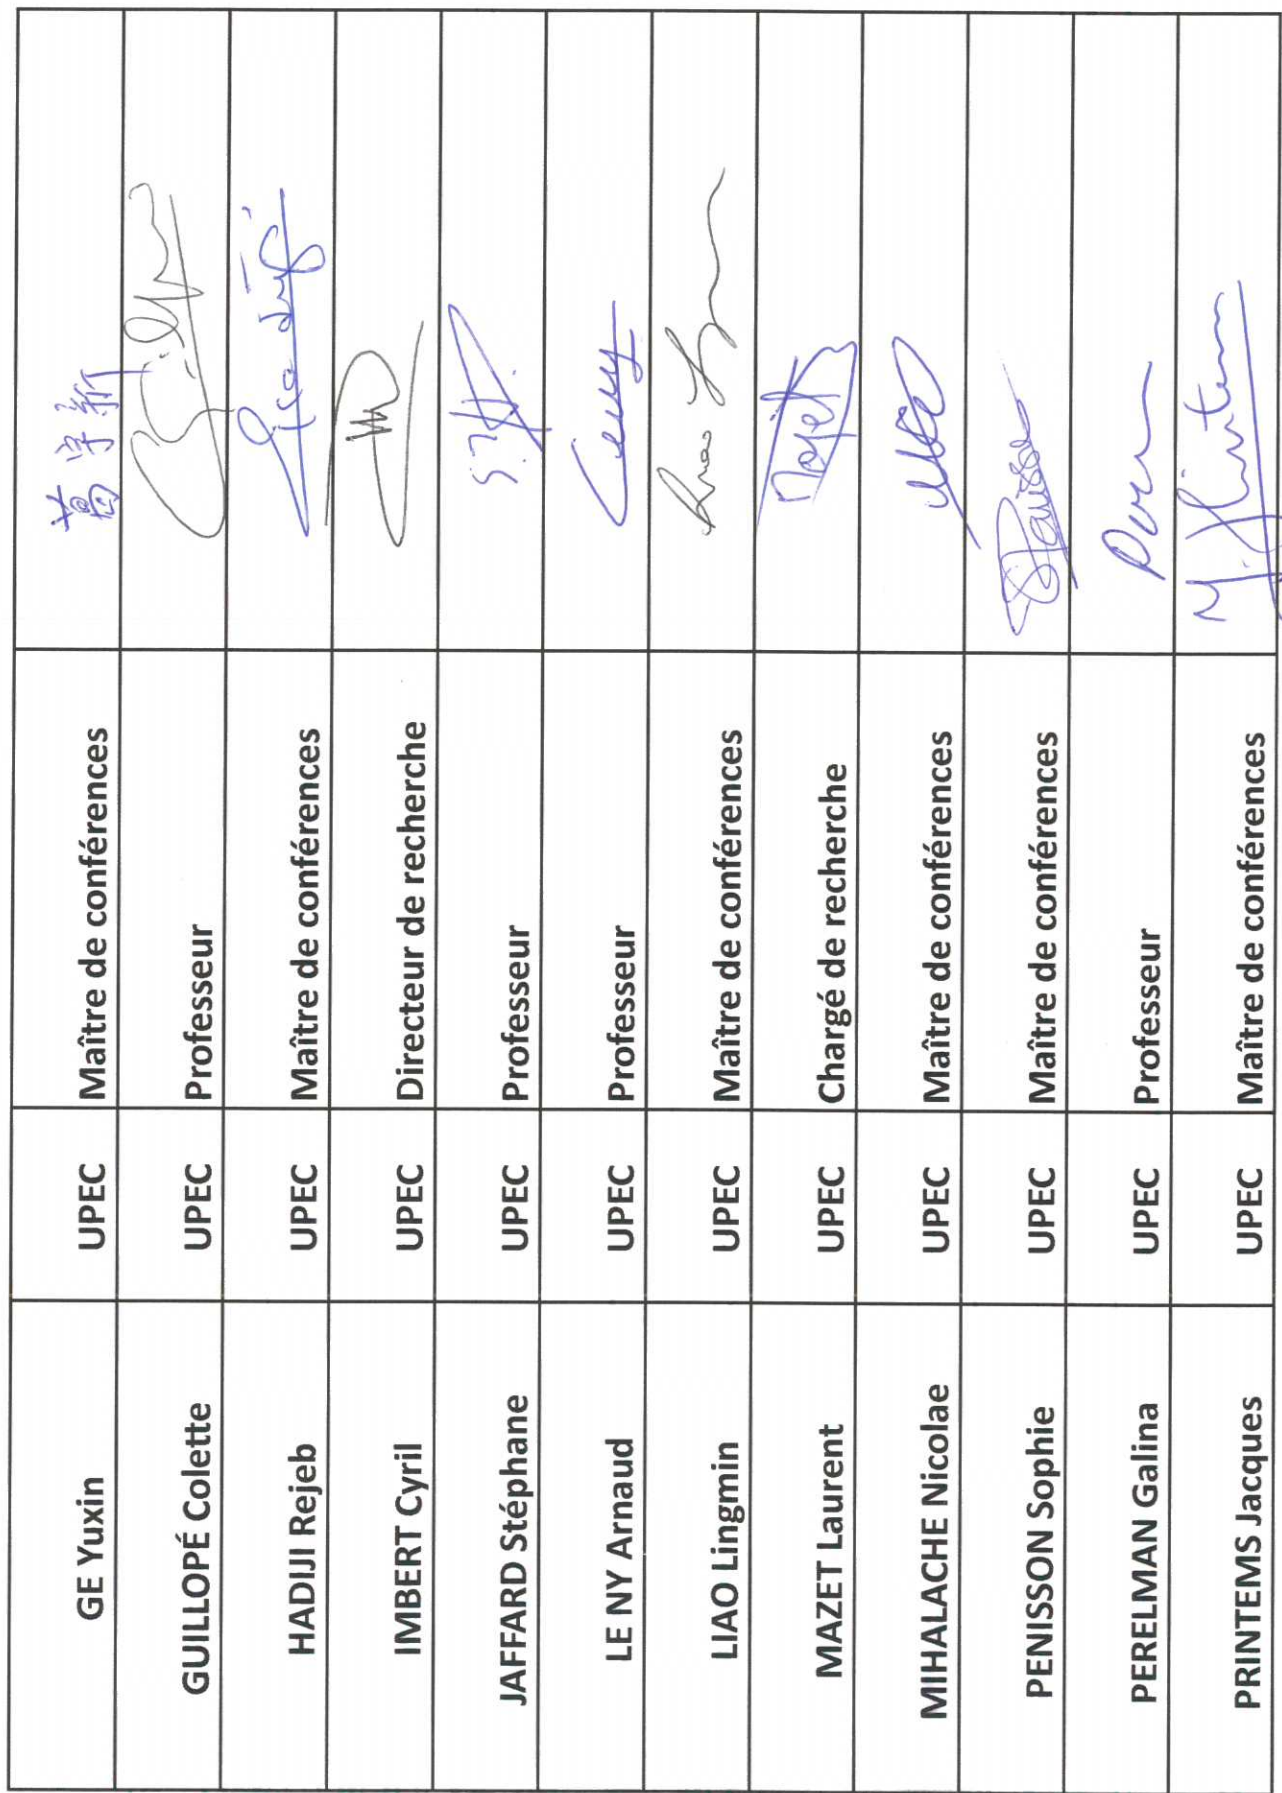 GE Yuxin UPEC Maître de conférences
GUILLOPÉ Colette UPEC Professeur
HADIJI Rejeb UPEC Maître de conférences
IMBERT Cyril UPEC Directeur de recherche
JAFFARD Stéphane UPEC Professeur
LE NY Arnaud UPEC Professeur
LIAO Lingmin UPEC Maître de conférences
MAZET Laurent UPEC Chargé de recherche
MIHALACHE Nicolae UPEC Maître de conférences
PENISSON Sophie UPEC Maître de conférences
PERELMAN Galina UPEC Professeur
PRINTEMS Jacques UPEC Maître de conférences